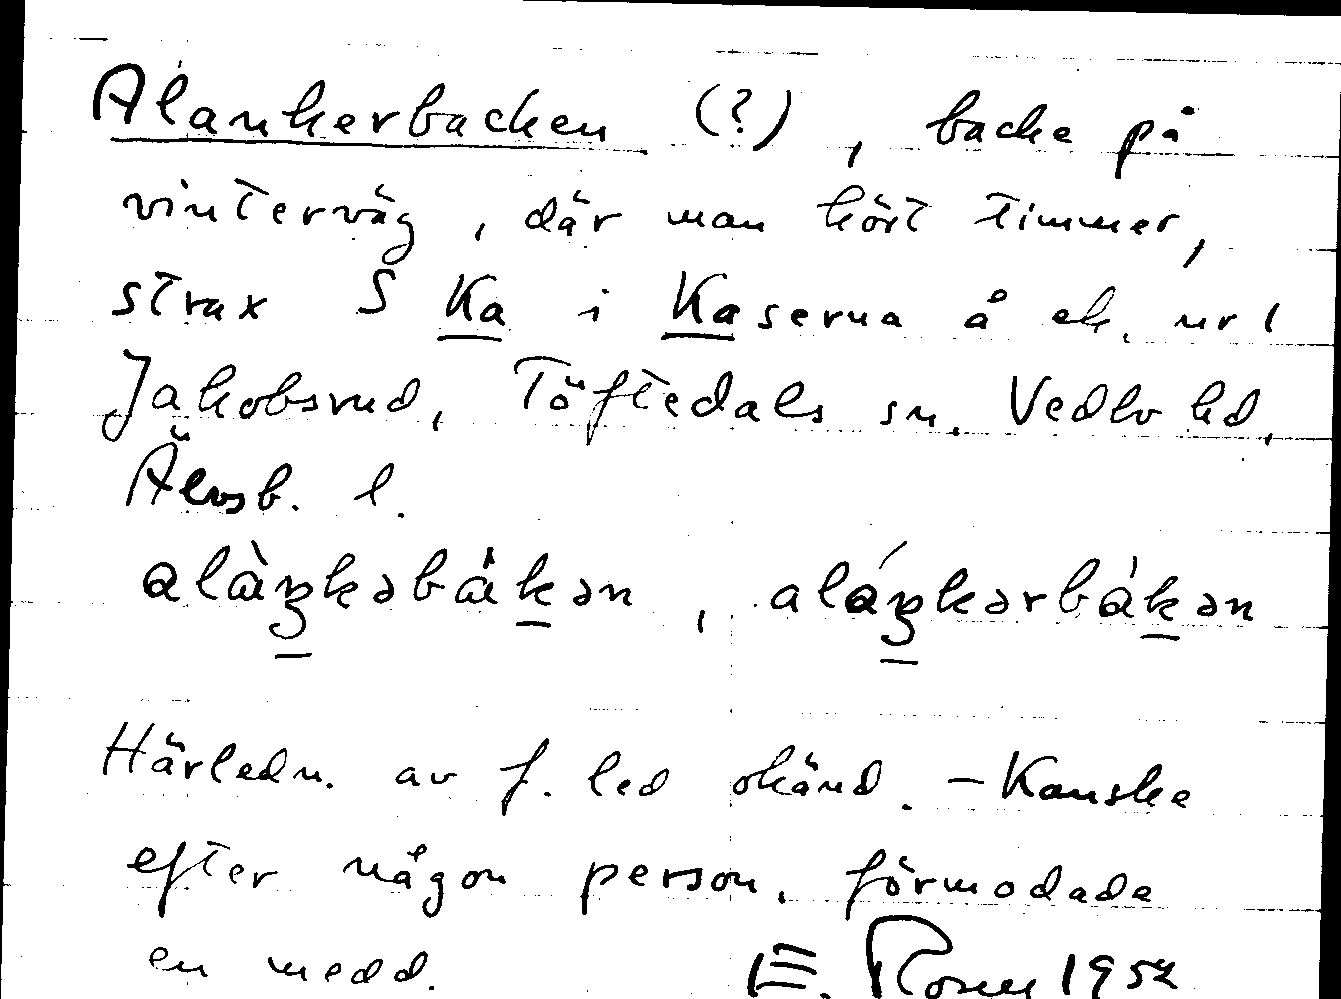 Alankerbacken (?), backe på
vinterväg, där man kört timmer,
strax S Ka i Kaserna å ek. ur 1
Jakobsrud, Töftedals sn. Vedbo hd,
Älvsb. l.
alàŋkəbàkən, aláŋkərbàkən
Härledn. av f. led okänd. – Kanske
efter någon person, förmodade
en medd. E. Rosell 1952